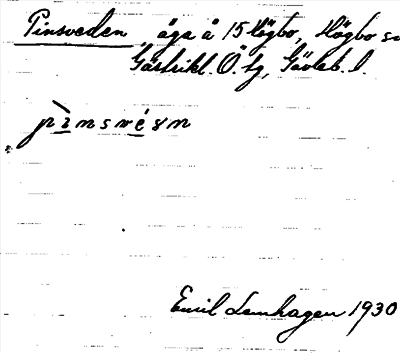 Pinsveden äga å 15 Högbo, Högbo sn
Gästrikl. Ö. tg, Gävleb. l.
Emil Lenhagen 1930